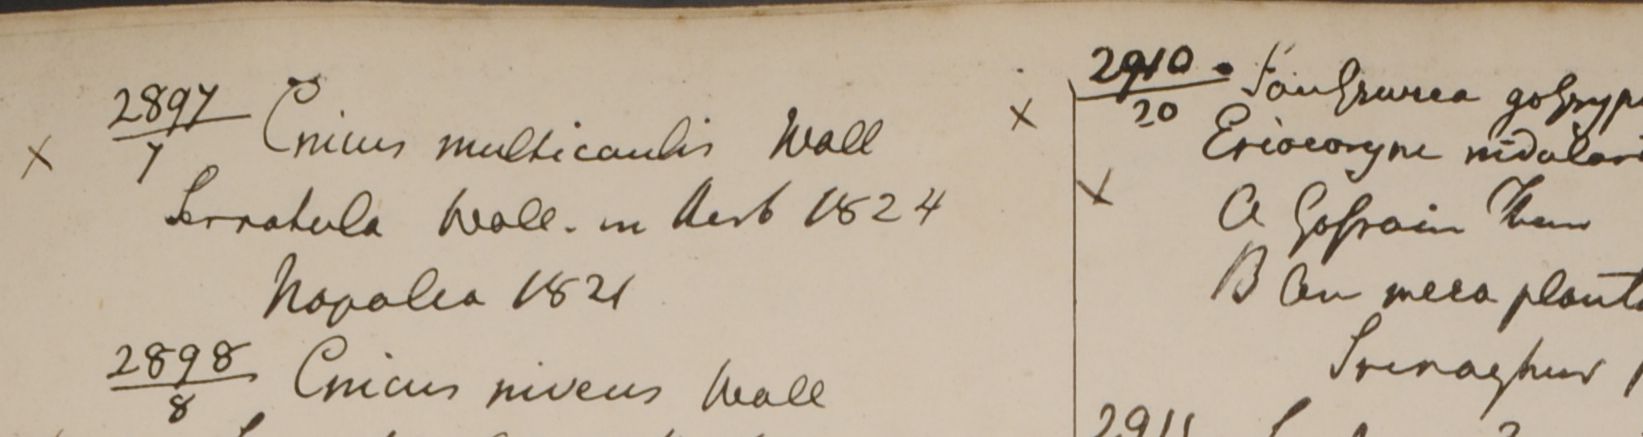 2897/7 Cnicus multicaulis Wall
Serratula Wall. in Herb 1824
Napalia 1821
2898/8 Cnicus niveus Wall
2910/20
Eriocoryne nidulari
A Gossain Than
B an mera planta
Srinaghur
2911